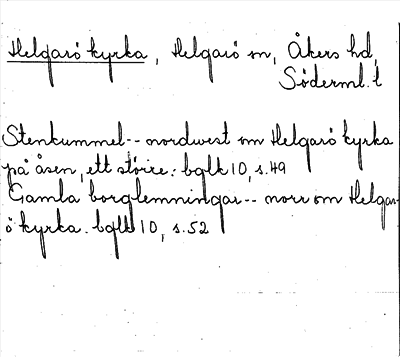 Helgarö kyrka, Helgarö sn, Åkers hd,
Söderml. l
Stenkummel -- nordwest om Helgarö kyrka
på åsen, ett större. bglk 10, s. 49
Gamla borglemningar -- norr om Helgar-
ö kyrka. bglk 10, s. 52